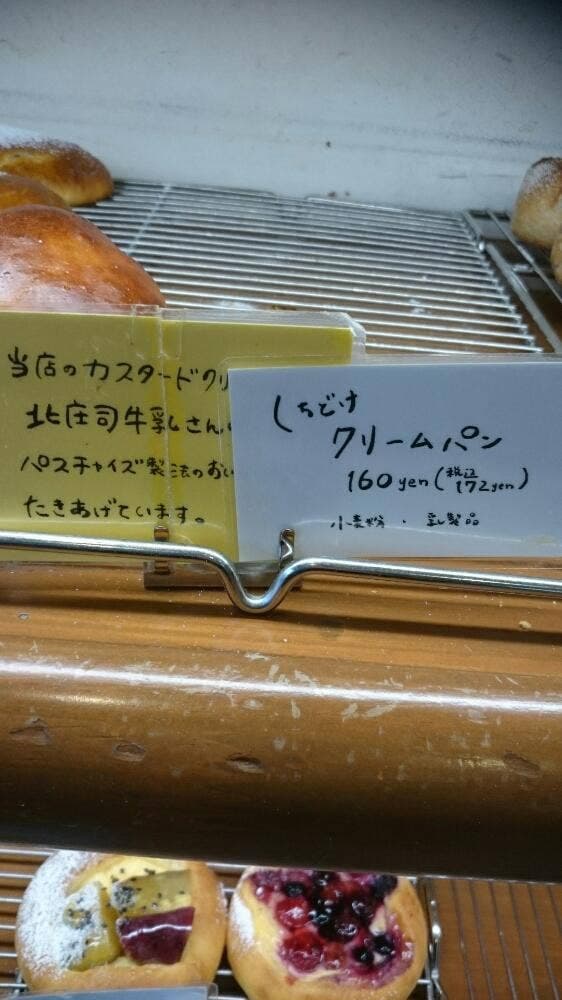 当店のカスタードクリ
北庄司牛乳さん
パスチャイズ製法のおい
たきあげています。
しちどけ
クリームパン
160yen(税込172yen)
小麦粉・乳製品